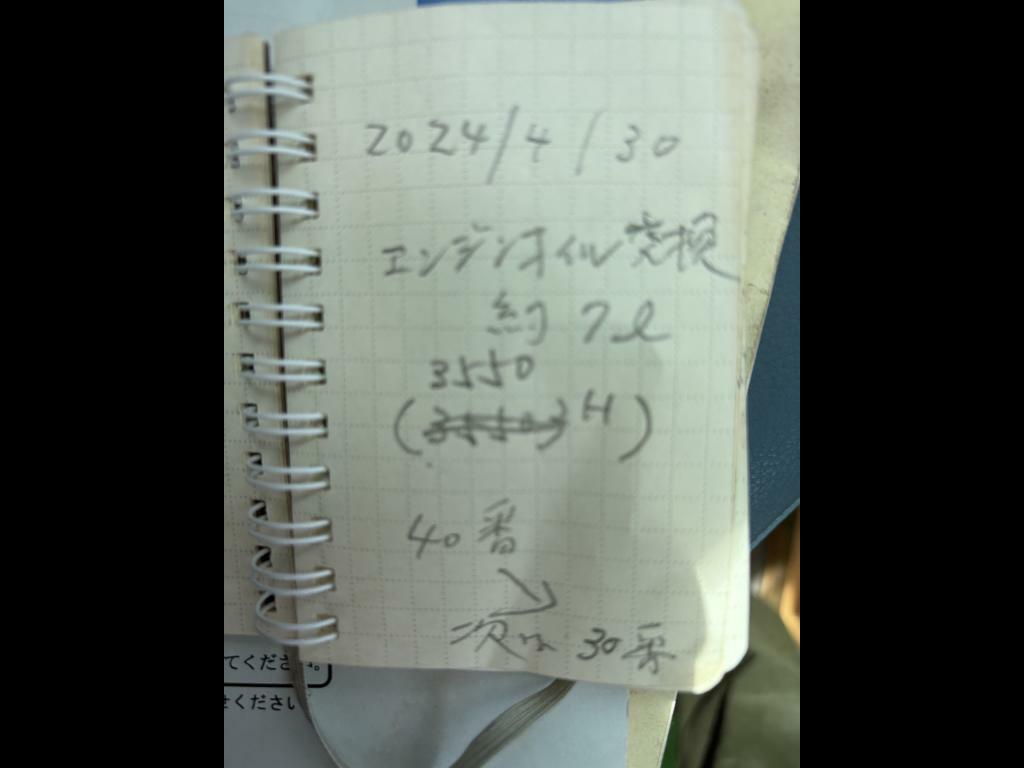 2024/4/30
エンジンオイル交換
約 7ℓ
3550
( H )
40番
↘
次は 30番
てください。
せください